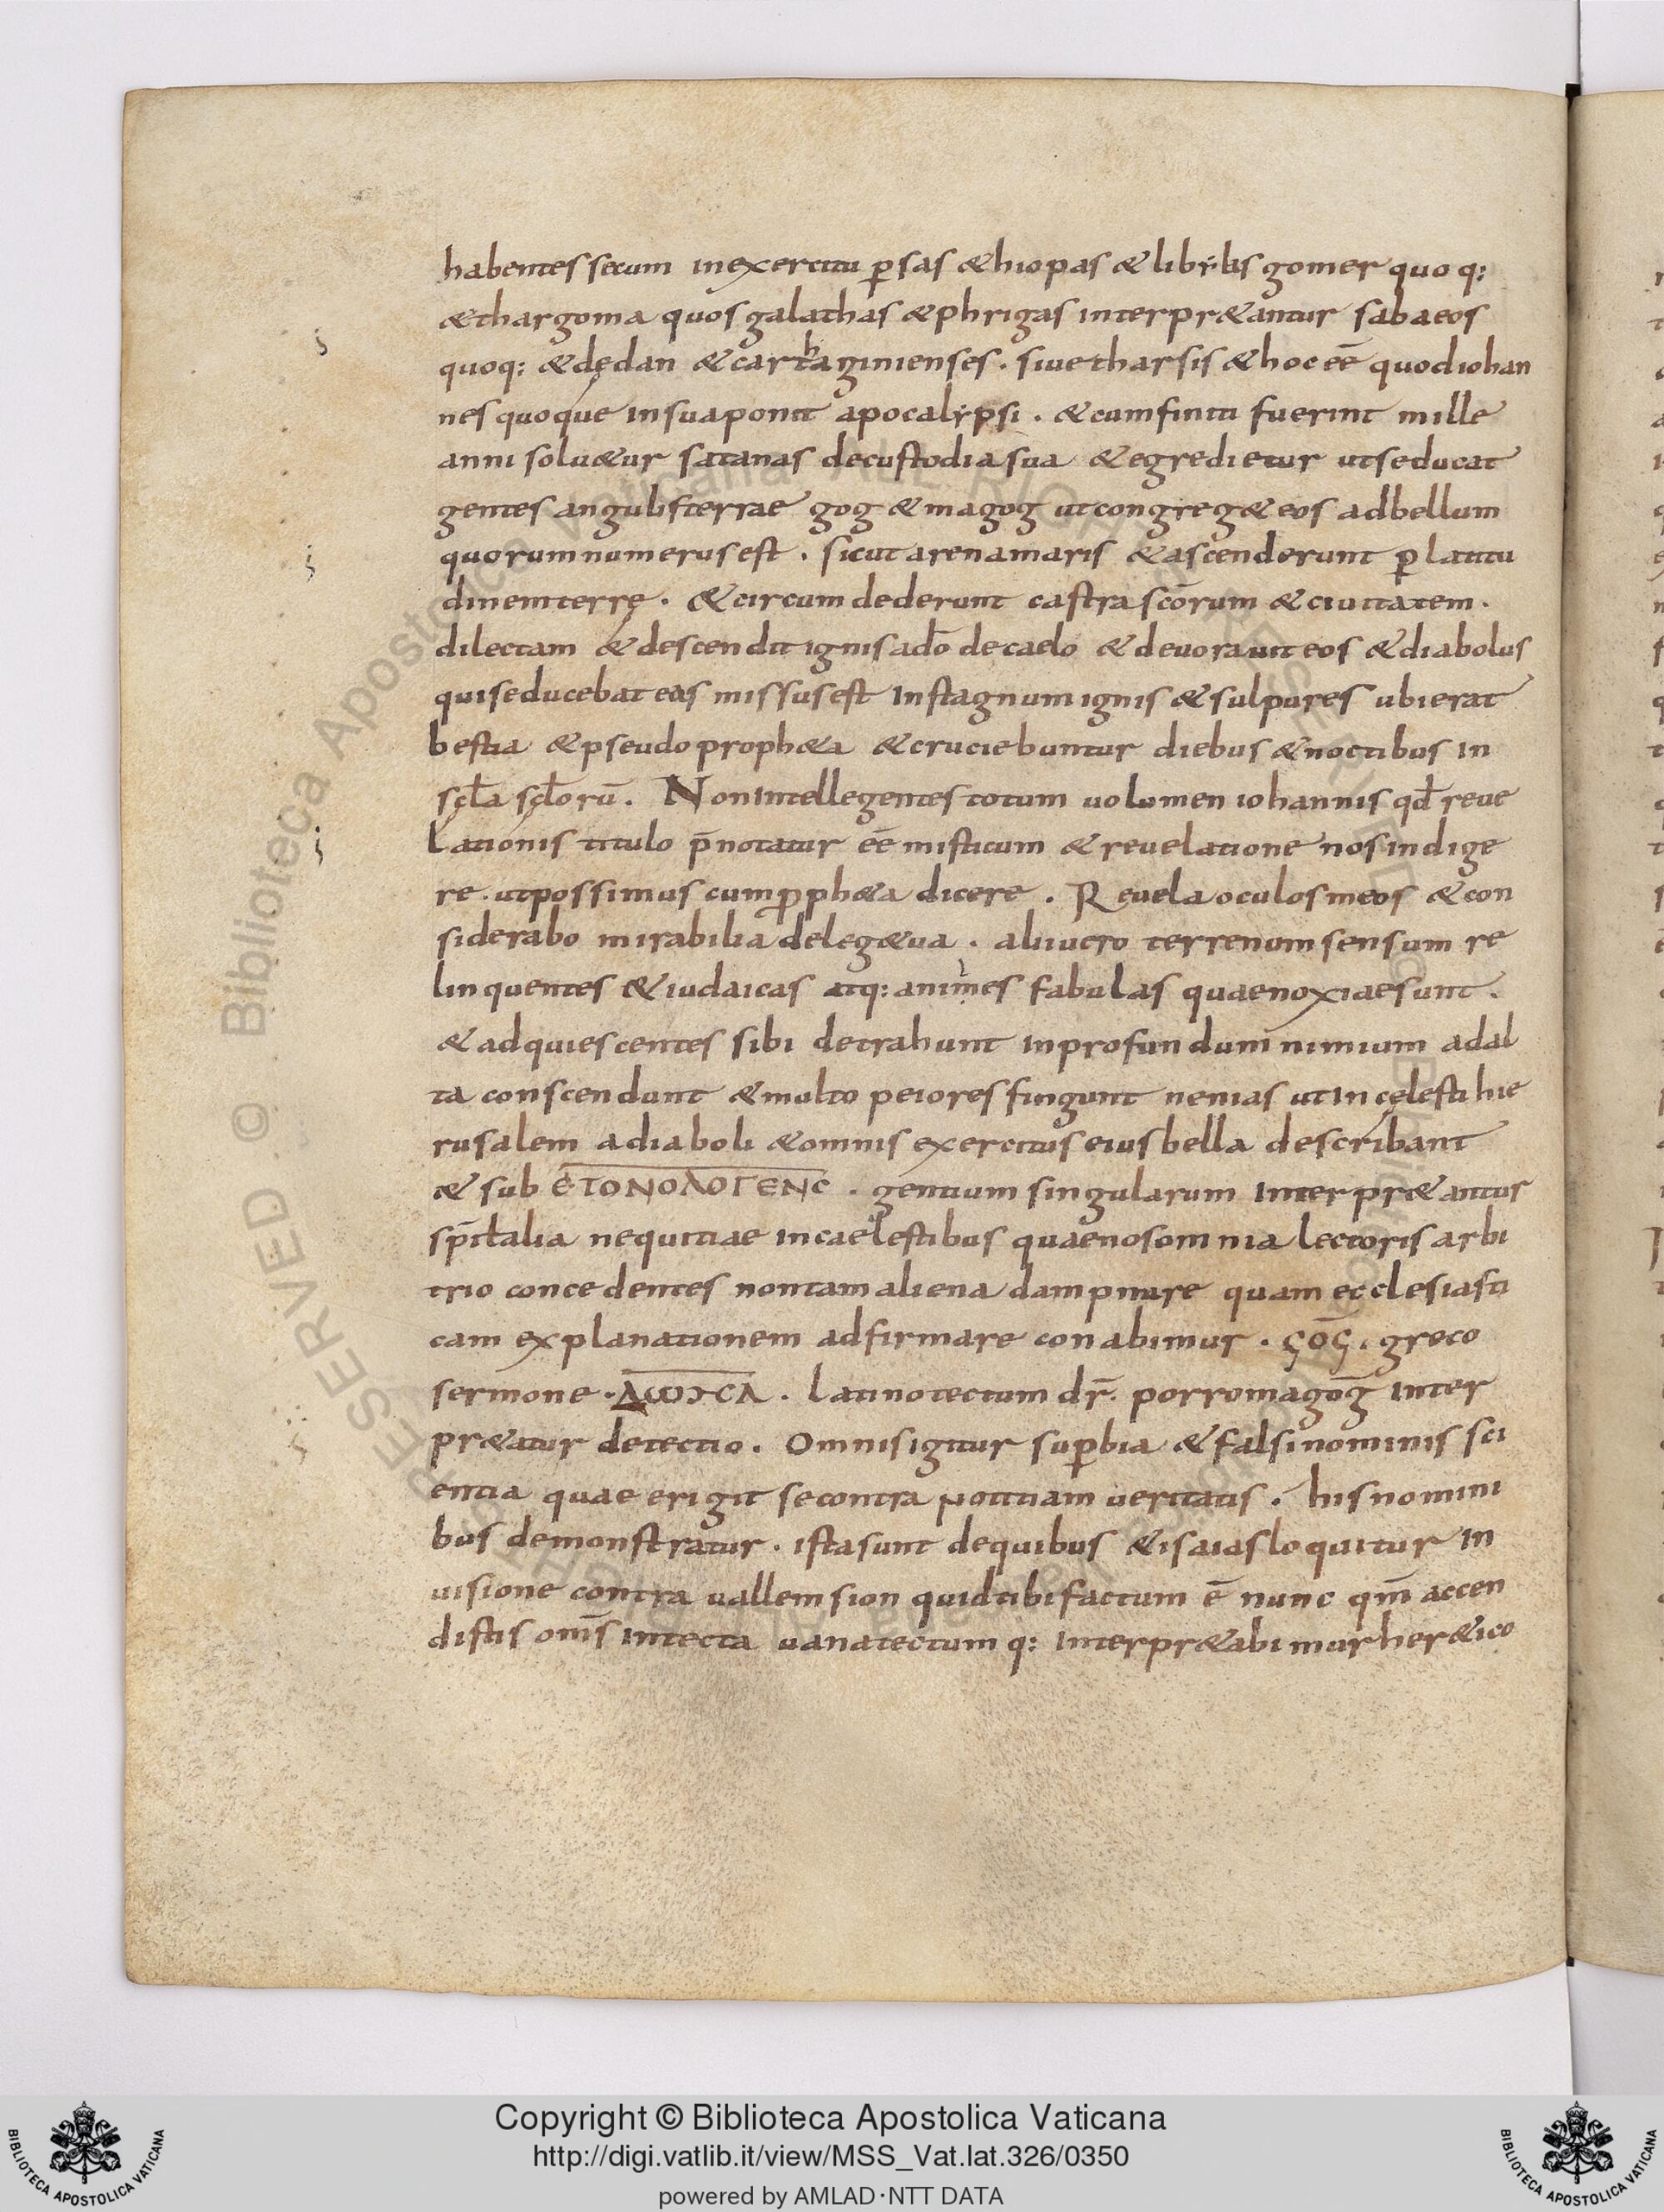 habentes secum inexercitu p̱sas &hiopas & libyas gomer quoq:
&thargoma quos galathas &phrigas interpr&antur sabaeos
quoq: &dedan &carthaginienses. siue tharsis & hoc eē quod iohan
nes quoque insua ponit apocalypsi. & cum finiti fuerint mille
anni solu&ur satanas de custodia sua & egredietur ut seducat
gentes angulis terrae gog & magog ut congreg& eos ad bellum
quorum numerus est. sicut arena maris & ascenderunt p̱ latitu
dinem terrę. & circum dederunt castra scōrum & ciuitatem.
dilectam & descendit ignis adō de caelo & deuorauit eos & diabolus
qui seducebat eos missus est in stagnum ignis & sulpures ubi erat
bestia & pseudo proph&a & cruciebuntur diebus & noctibus in
sc̨ła sc̨łorū. Non intellegentes totum uolumen iohannis qđ reue
lationis titulo p̄notatur eē misticum & reuelatione nos indige
re. ut possimus cum p̱ph&a dicere. Reuela oculos meos & con
siderabo mirabilia de lege tua. alii uero terrenum sensum re
linquentes & iudaicas atq: animes fabulas quae noxiae sunt.
& adquiescentes sibi detrahunt in profundum nimium ad al
ta conscendunt & multo peiores fingunt nenias ut in cęlesti hie
rusalem a diaboli & omnis exercitus eius bella describant
& sub ЄΤΟΝΟΛΟΓЄΝC. gentium singularum interpr&antur
spīt̄alia nequitiae in caelestibus quae nos omnia lectoris arbi
trio concedentes non tam aliena dampnare quam ecclesiasti
cam explanationem adfirmare conabimur. ϛοϛ̄. greco
sermone. ΔωϽCΛ. latino tectum dr̄. porro magog inter
pr&atur detectio. Omnis igitur sup̱bia & falsi nominis sci
entia quae erigit se contra notitiam ueritatis. his nomini
bus demonstratur. ista sunt de quibus & isaias loquitur in
uisione contra uallem sion quid tibi factum ē nunc qm̄ accen
distis om̄s in tecta uana tectum q: interpr&abimur her&ico
Copyright © Biblioteca Apostolica Vaticana
http://digi.vatlib.it/view/MSS_Vat.lat.326/0350
powered by AMLAD·NTT DATA
BIBLIOTECA APOSTOLICA VATICANA
BIBLIOTECA APOSTOLICA VATICANA